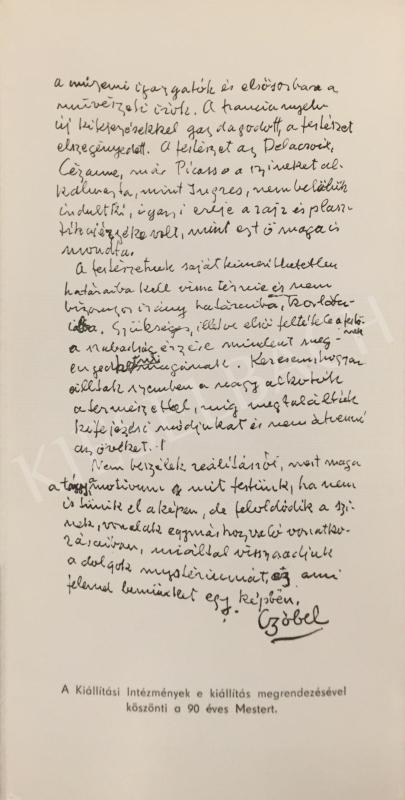 a múzeumi igazgatók és elsősorban a
művészeti írók. A francia nyelv
új kifejezésekkel gazdagodott, a festészet
elszegényedett. A festészet az Delacroix,
Cézanne, már Picasso a színeket al-
kalmazta, mint Ingres, nem belőlük
indult ki, igazi ereje a rajz és plasz-
tika érzéke volt, mint ezt ő maga is
mondta.
A festészetnek saját kimeríthetetlen
határaiba kell visszatérnie és nem
bizonyos irány határaiba, korláta-
iba. Szükséges, illetve első feltétele a festő-
nek
a szabadság érzése mindent meg-
engedhetni magának. Keresem, hogyan
álltak szemben a nagy alkotók
a természettel, míg megtalálták
kifejezési módjukat és nem átvenni
az övéket.
Nem beszélek realitásról, mert maga
a tárgy motívum mit festünk, ha nem
is tűnik el a képen, de feloldódik a szí-
nek, vonalak egymáshoz való vonatko-
zásaiban, miáltal visszaadjuk
a dolgok mystériumát, ez ami
felemel bennünket egy képben.
Czóbel
A Kiállítási Intézmények e kiállítás megrendezésével
köszönti a 90 éves Mestert.